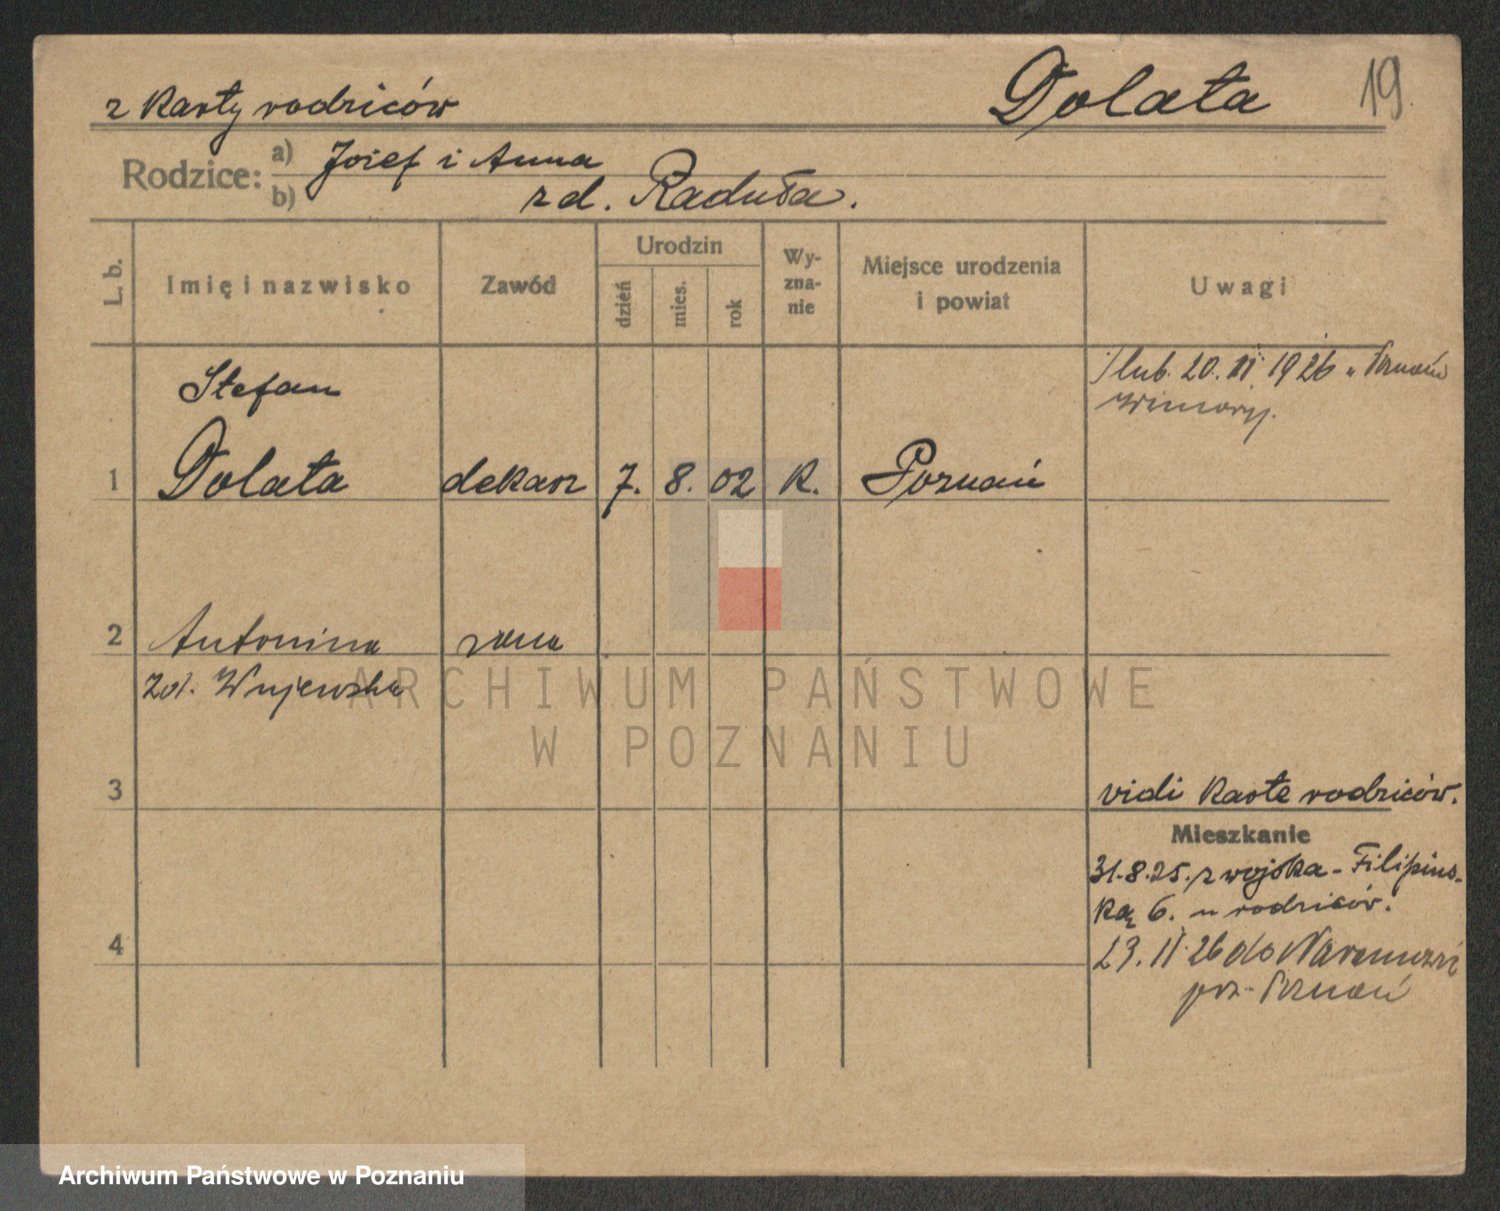 z Karty rodziców
Dolata
19.
Rodzice:
a) Józef i Anna
b) zd. Raduła.
L. b.
Imię i nazwisko
Zawód
Urodzin
dzień
mies.
rok
Wy-
zna-
nie
Miejsce urodzenia
i powiat
Uwagi
ślub. 20. II. 1926 w Poznań
Winiary.
Stefan
1 Dolata dekarz 7. 8. 02 K. Poznań
2 Antonina żona
Wujewska
ARCHIWUM PAŃSTWOWE
W POZNANIU
3
vidi Kartę rodziców.
Mieszkanie
31.8.25. z wojska - Filipińs-
ką 6. u rodziców.
4
23. II 26 do
Poznań
Archiwum Państwowe w Poznaniu